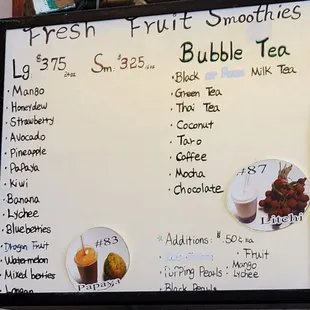 Fresh Fruit Smoothies
Lg. $3.75 24oz Sm. $3.25
• Mango
• Honeydew
• Strawberry
• Avocado
• Pineapple
• Papaya
• Kiwi
• Banana
• Lychee
• Blueberries
• Dragon Fruit
• Watermelon
• Mixed berries
• Longan
#83
Papaya
Bubble Tea
• Black or Milk Tea
• Green Tea
• Thai Tea
• Coconut
• Taro
• Coffee
• Mocha
• Chocolate
#87
Litchi
*Additions: $.50 ea
• Fruit
• Popping Pearls: Mango
Lychee
• Black Pearls